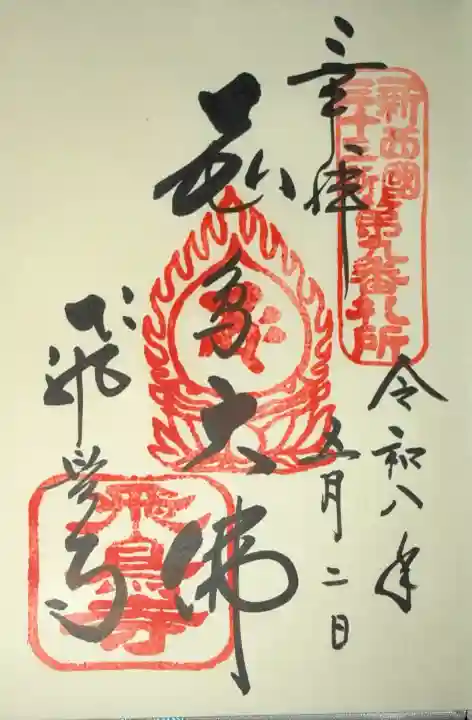 奉拝
新西國
三十三所第九番札所
令和八年
五月二日
飛鳥大佛
飛鳥寺
飛鳥寺